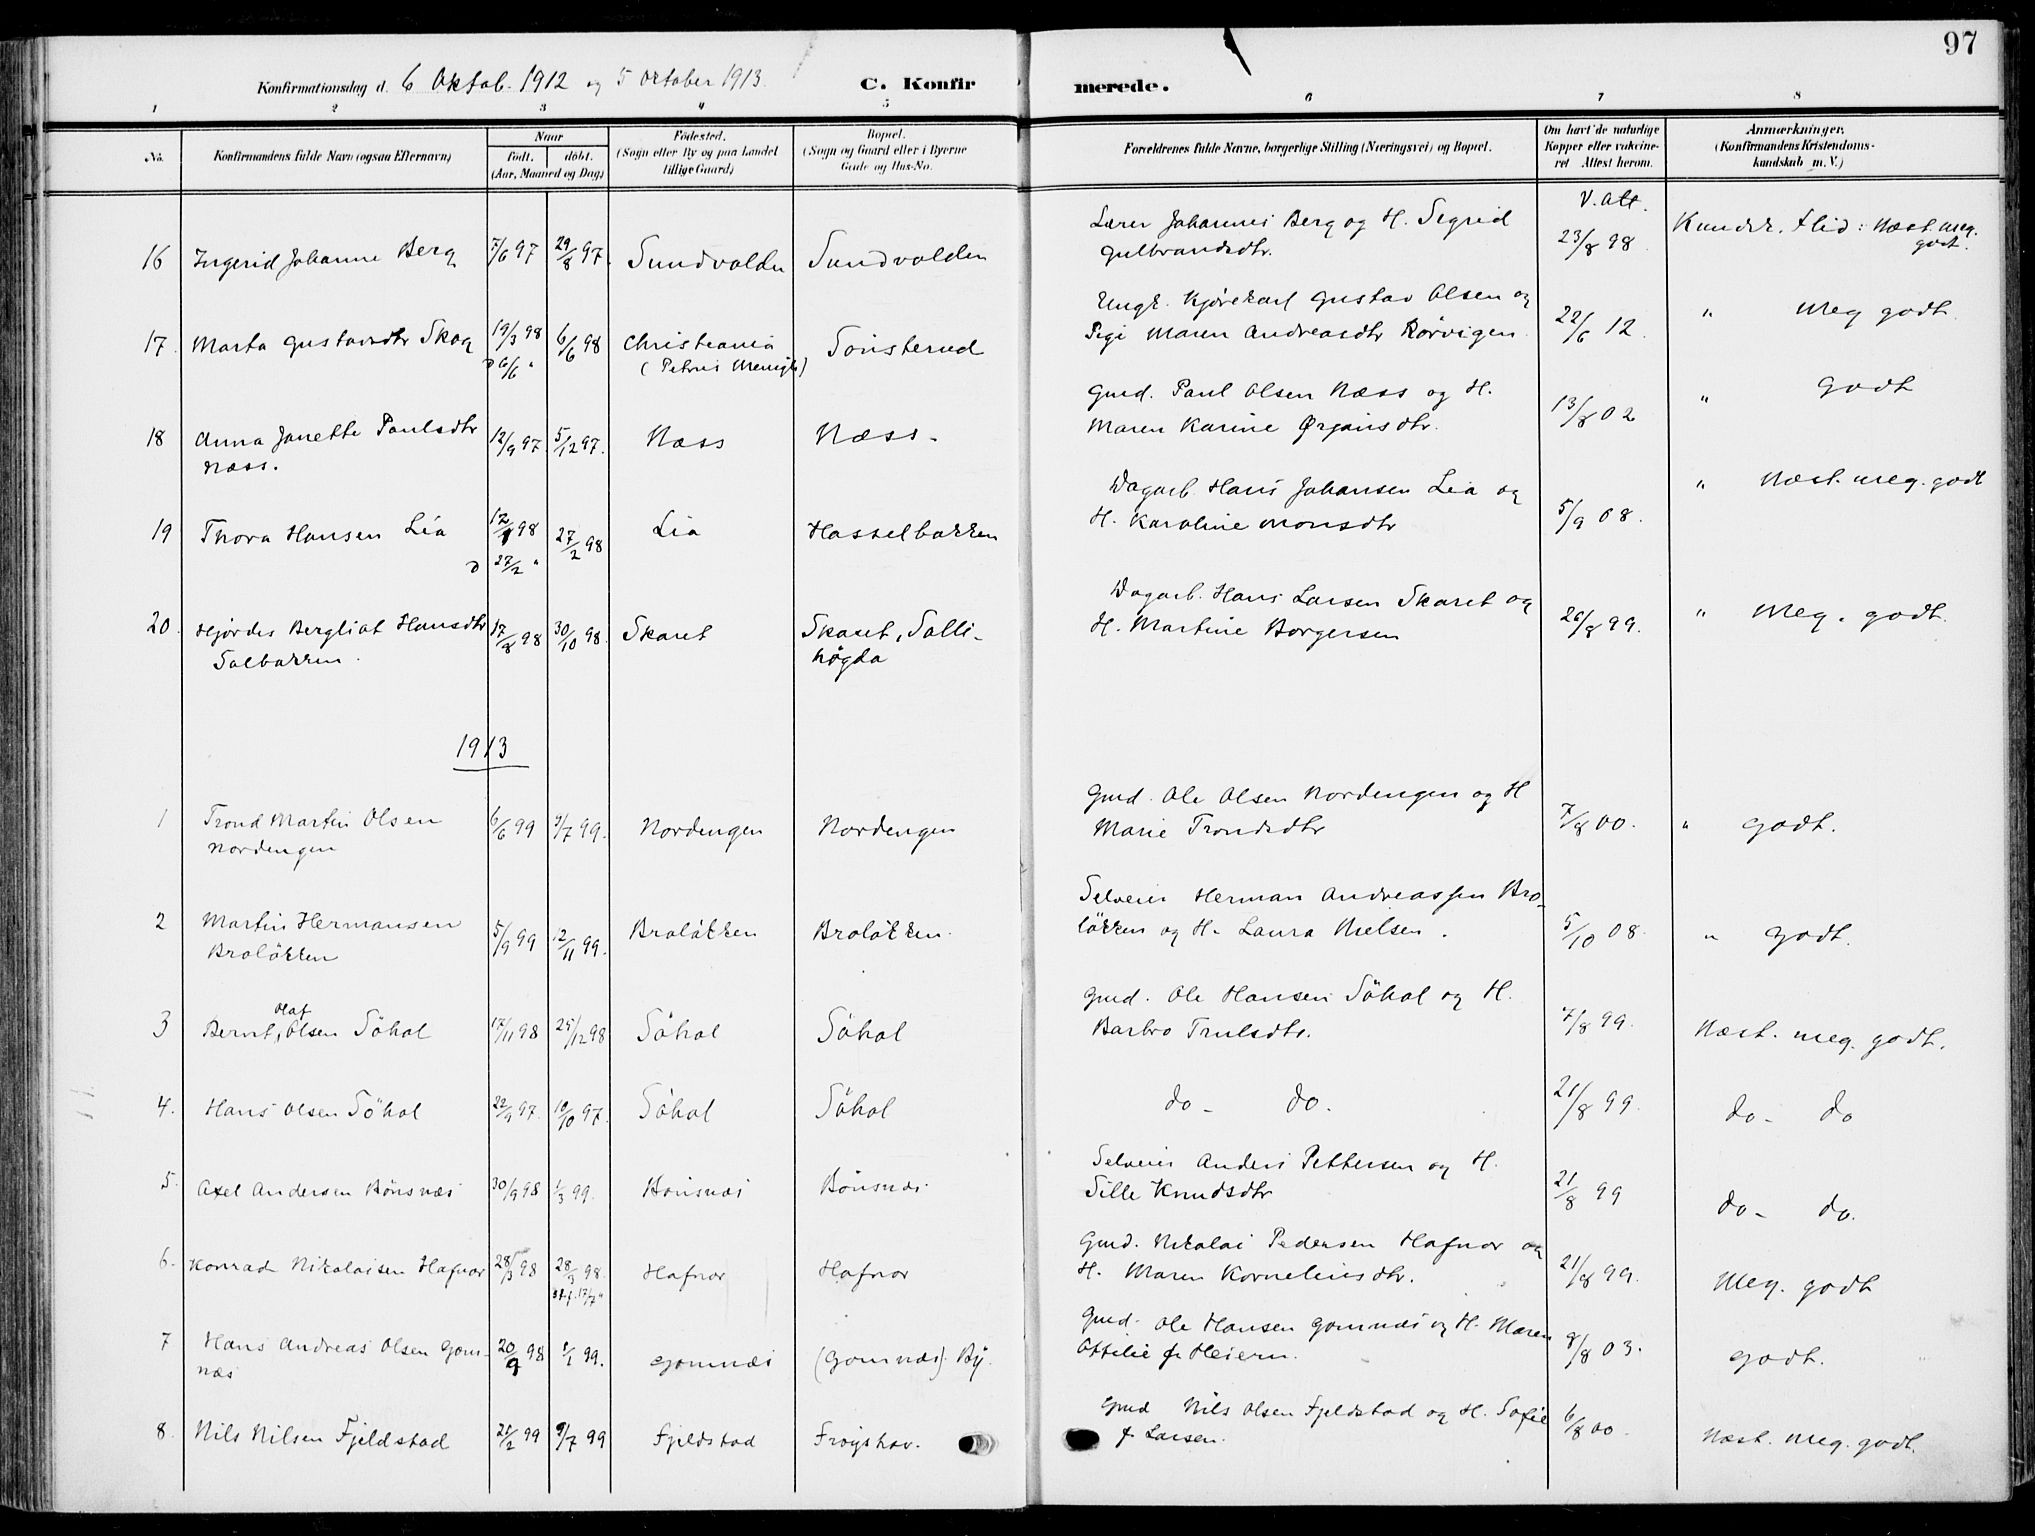 97
Konfirmationsdag d. 6 Oktob. 1912 og 5 October 1913.
C. Konfirmerede.
1 2 3 4 5 6 7 8
No. Konfirmandens fulde Navn (ogsaa Efternavn) Naar født. døbt. (Aar, Maaned og Dag) Fødested. (Sogn eller By og paa Landet tillige Gaard) Bopæl. (Sogn og Gaard eller i Byerne Gade og Hus-No. Forældrenes fulde Navne, borgerlige Stilling (Næringsvei) og Bopæl. Om havt de naturlige Kopper eller vakcineret Attest herom. Anmærkninger. (Konfirmandens Kristendomskundskab m. V.)
V. att.
16 Ingerid Johanne Berg 7/6 97 29/8 97. Sundvolden Sundvolden Lærer Johannes Berg og H. Sigrid
Gulbrandsdtr. 23/8 98 Kundsk. Flid: Næst. meg. godt.
17. Marta Gustavsdtr Skog 19/3 98 6/6 98 Christiania Sönsterud Ungk. Kjørekarl Gustav Olsen og
D 6/6 " (Petrus Menigh) Pige Maren Andreasdtr Rörvigen. 22/6 12. " Meg godt
18 Anna Janette Paulsdtr 12/9 97. 5/12 97. Næss Næss. Gmd. Paul Olsen Næss og H.
Næss. Maren Karine Ørjansdtr. 13/8 02 " Godt
19 Thora Hansen Lia 12/1 98 27/2 98 Lia Hasselbakken Dagarb. Hans Johansen Lia og
D 27/2 " H. Karoline Monsdtr 5/9 08. " Næst. meg. godt
20. Hjørdis Bergliot Hansdtr 17/8 98 30/10 98. Skaret Skaret, Solli- Dagarb. Hans Larsen Skaret og
Solbakken. høgda H. Martine Borgersen 26/8 99. " Meg. godt.
1913
1 Trond Martin Olsen 6/6 99 9/7 99. Nordengen Nordengen Gmd. Ole Olsen Nordengen og H
Nordengen Marie Trondsdtr 7/8 00. " Godt.
2 Martin Hermansen 5/9 99 12/11 99. Bralökken Bralökken. Selveier Herman Andreassen Bra-
Bralökken lökken og H. Laura Nielsen. 5/10 08. " Godt.
3 Bernt, Olaf Olsen Söhol 17/11 98 25/12 98 Söhol Söhol Gmd. Ole Hansen Söhol og H.
Barbro Trulsdtr. 4/8 99. Næst. meg. godt.
4. Hans Olsen Söhol 22/9 97. 10/10 97. Söhol Söhol do - do. 21/8 99. do - do
5. Axel Andersen Bönsnæs 30/9 98 1/3 99. Bönsnæs Bönsnæs Selveier Anders Pettersen og H.
Sille Knudsdtr 21/8 99 do - do.
6. Konrad Nikolaisen Hafnor 28/3 98 28/3 98. Hafnor Hafnor Gmd. Nikolai Pedersen Hafnor og
H. Maren Korneliusdtr. 21/8 99. Meg. godt
7 Hans Andreas Olsen Gom- 20/9 98 1/1 99. Gomnæs (Gomnæs). By. Gmd. Ole Hansen Gomnæs og H. Maren
næs Ottilie f. Heiern. 8/8 03. Godt.
8. Nils Nilsen Fjeldstad 21/2 99 9/7 99 Fjeldstad Frøyshov. Gmd Nils Olsen Fjeldstad og H. Sofie
f. Larsen. 6/8 00. Næst. meg. godt.